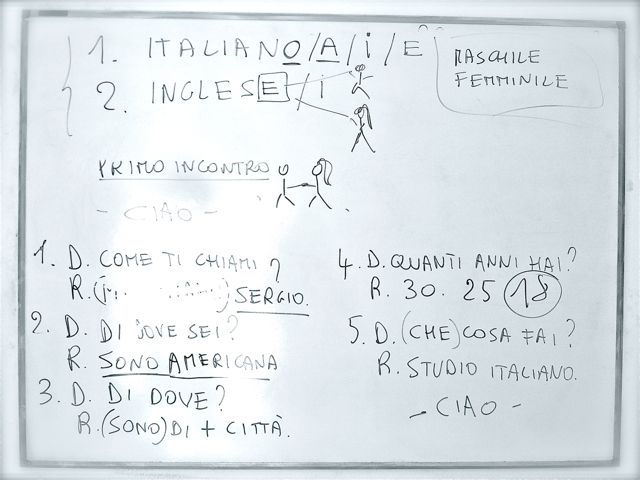 1. ITALIANO/A/i/E
2. INGLESE/i
MASCHILE
FEMMINILE
PRIMO INCONTRO
- CIAO -
1. D. COME TI CHIAMI?
R. ( ) SERGIO.
2. D. DI DOVE SEI?
R. SONO AMERICANA
3. D. DI DOVE?
R. (SONO) DI + CITTÀ.
4. D. QUANTI ANNI HAI?
R. 30. 25 18
5. D. (CHE) COSA FAI?
R. STUDIO ITALIANO.
- CIAO -